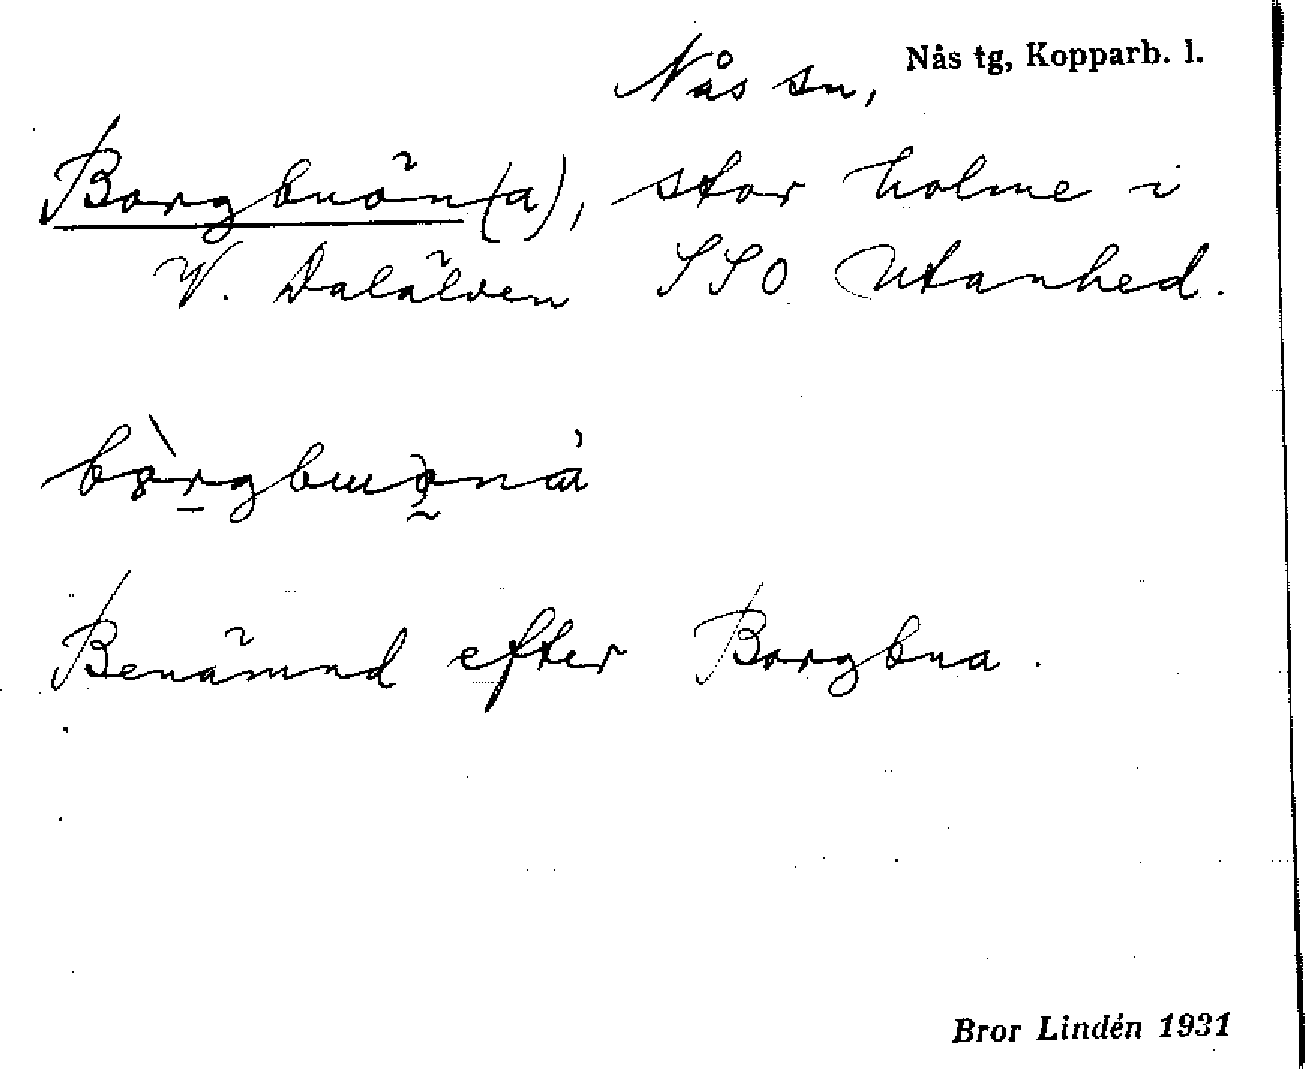 Nås tg, Kopparb. l.
Nås sn,
Borgbuön(a), stor holme i
V. Dalälven SSO Utanhed.
Benämnd efter Borgbua.
Bror Lindén 1931